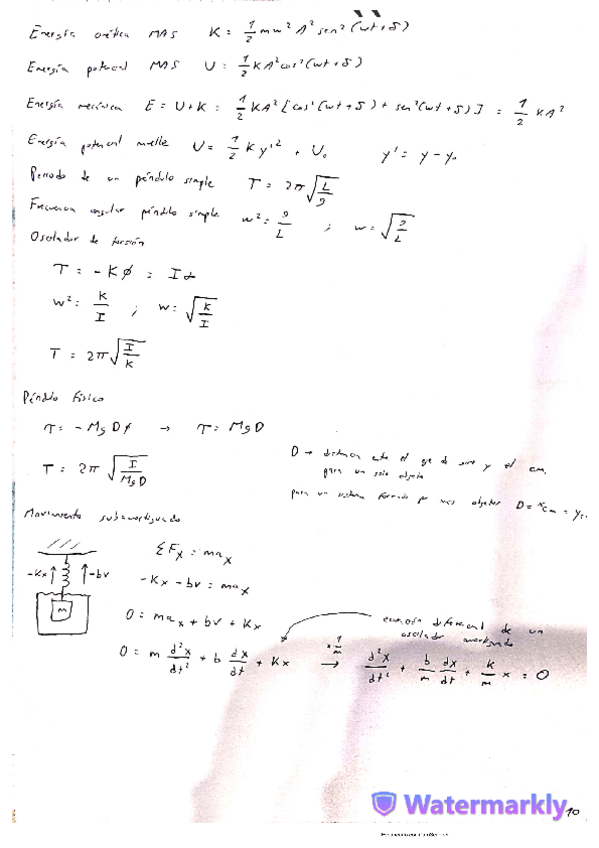 Energía cinética MAS K = 1/2 mw² A² sen² (wt + δ)
Energía potencial MAS U = 1/2 KA² cos² (wt + δ)
Energía mecánica E = U + K = 1/2 KA² [cos² (wt + δ) + sen² (wt + δ)] = 1/2 KA²
Energía potencial muelle U = 1/2 K y'² + U₀ y' = y - y₀
Periodo de un péndulo simple T = 2π √(L/g)
Frecuencia angular péndulo simple w² = g/L ; w = √(g/L)
Oscilador de torsión
τ = -Kφ = Iα
w² = K/I ; w = √(K/I)
T = 2π √(I/K)
Péndulo físico
τ = -MgDφ → τ = MgD
T = 2π √(I/MgD)
D → distancia entre el eje de giro y el cm
para un solo objeto
para un sistema formado por más objetos D = xcm =
Movimiento subamortiguado
-Kx -bv
m
ΣFx = max
-Kx - bv = max
0 = max + bv + Kx
ecuación diferencial de un
oscilador amortiguado
0 = m d²x/dt² + b dx/dt + Kx x 1/m → d²x/dt² + b/m dx/dt + K/m x = 0
Watermarkly
10